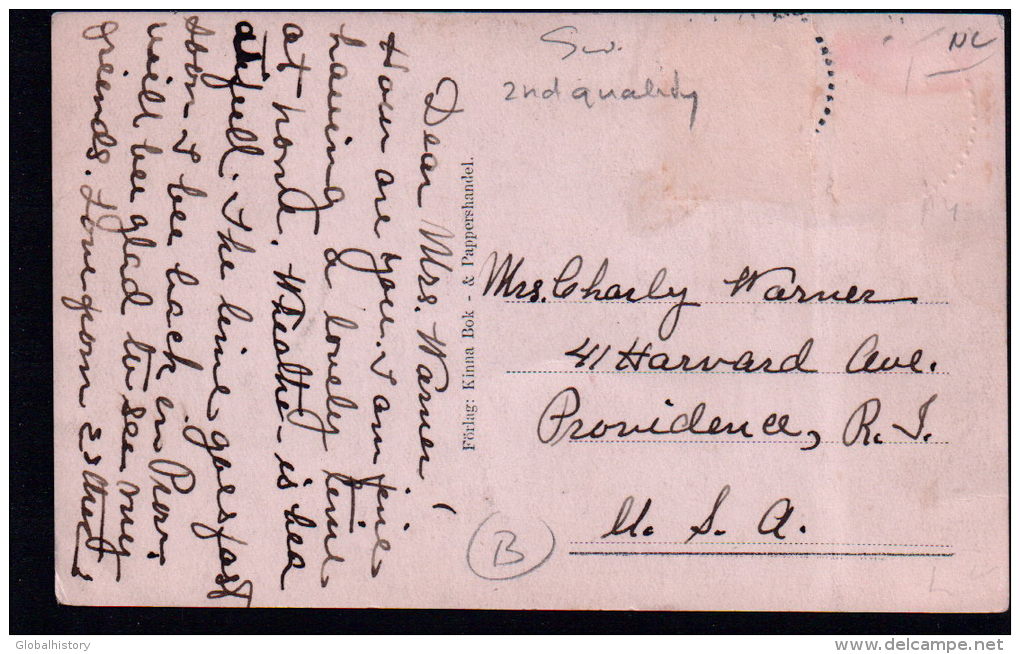 Dear Mrs. Warner!
How are you. I am fine
having a lovely time
at home. Wheather is hea
utifull. The time goes fast
soon I bee back in Prov.
will bee glad to see my
friends. Love from Esther
Förlag: Kinna Bok - & Pappershandel.
Sw.
2nd quality
NC
Mrs. Charly Warner
41 Harvard Ave.
Providence, R. I.
U. S. A.
B
Globalhistory
www.delcampe.net